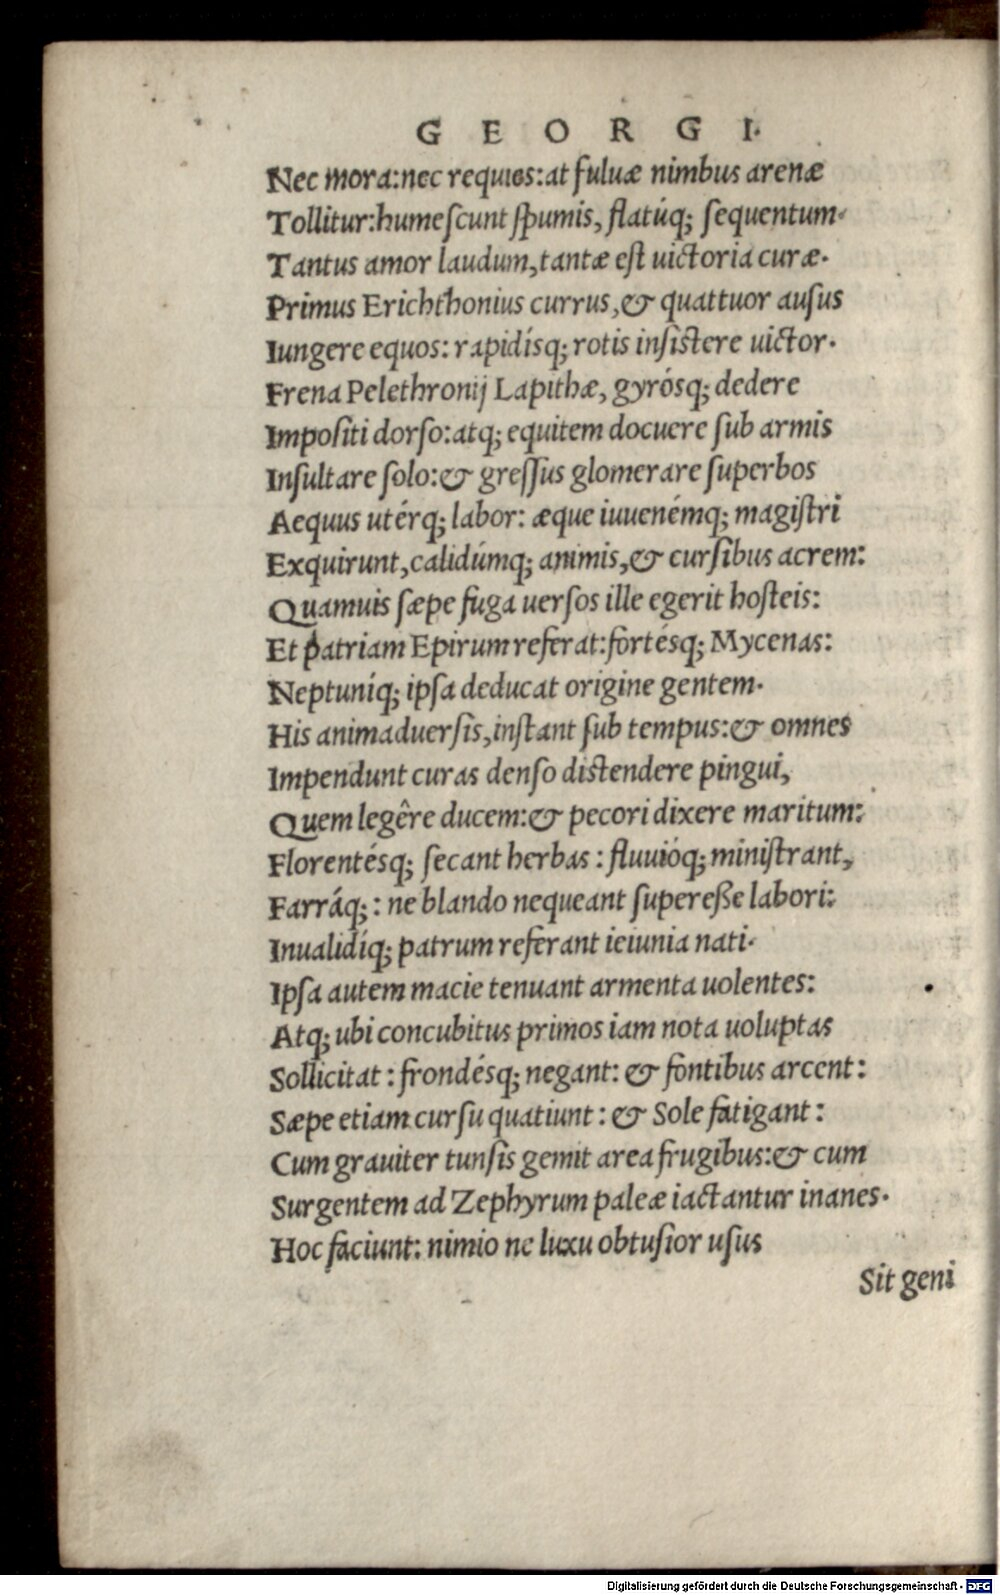 GEORGI.
Nec mora: nec requies: at fuluæ nimbus arenæ
Tollitur: humeſcunt ſpumis, flatúq; ſequentum.
Tantus amor laudum, tantæ eſt uictoria curæ.
Primus Erichthonius currus, & quattuor auſus
Iungere equos: rapidísq; rotis inſiſtere uictor.
Frena Pelethronij Lapithæ, gyrósq; dedere
Impoſiti dorſo: atq; equitem docuere ſub armis
Inſultare ſolo: & greſſus glomerare ſuperbos
Aequus utérq; labor: æque iuuenémq; magiſtri
Exquirunt, calidúmq; animis, & curſibus acrem:
Quamuis ſæpe fuga uerſos ille egerit hoſteis:
Et patriam Epirum referat: fortésq; Mycenas:
Neptuníq; ipſa deducat origine gentem.
His animaduerſis, inſtant ſub tempus: & omnes
Impendunt curas denſo diſtendere pingui,
Quem legêre ducem: & pecori dixere maritum:
Florentésq; ſecant herbas: fluuióq; miniſtrant,
Farráq;: ne blando nequeant ſupereſſe labori:
Inualidíq; patrum referant ieiunia nati.
Ipſa autem macie tenuant armenta uolentes:
Atq; ubi concubitus primos iam nota uoluptas
Sollicitat: frondésq; negant: & fontibus arcent:
Sæpe etiam curſu quatiunt: & Sole fatigant:
Cum grauiter tunſis gemit area frugibus: & cum
Surgentem ad Zephyrum paleæ iactantur inanes.
Hoc faciunt: nimio ne luxu obtuſior uſus
Sit geni
Digitalisierung gefördert durch die Deutsche Forschungsgemeinschaft - DFG